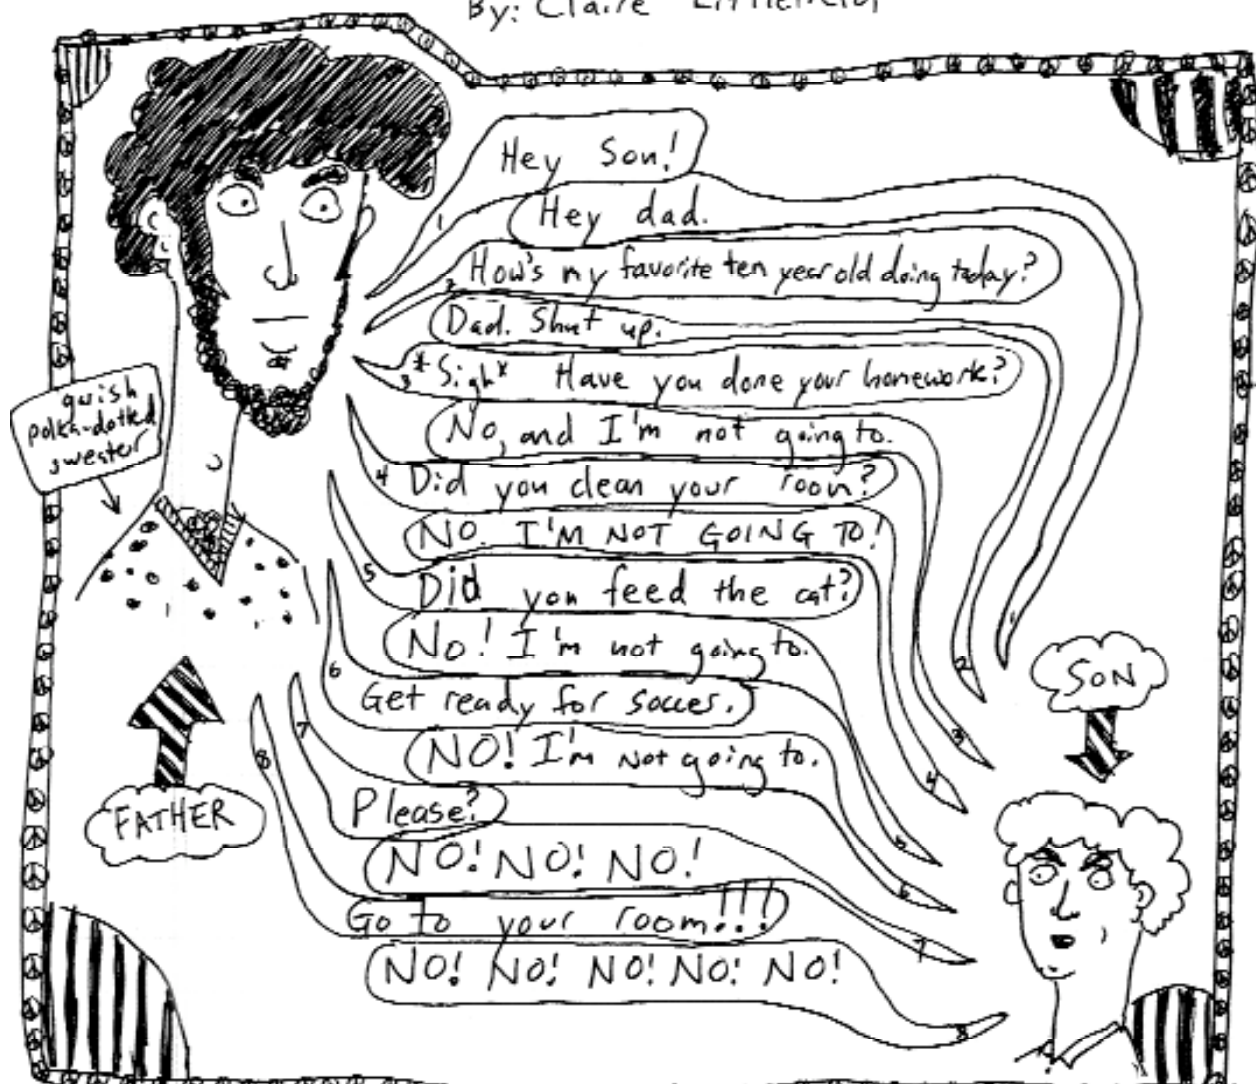 By: Claire Littlefield
Hey Son!
1
Hey dad.
1
2 How's my favorite ten year old doing today?
Dad. Shut up.
2
3 *Sigh* Have you done your homework?
No, and I'm not going to.
3
4 Did you clean your room?
NO. I'M NOT GOING TO!
4
5 Did you feed the cat?
No! I'm not going to.
5
6 Get ready for soccer.
NO! I'm Not going to.
6
7 Please?
NO! NO! NO!
7
8 Go to your room!!!
NO! NO! NO! NO! NO!
8
polka-dotted
sweater
FATHER
SON